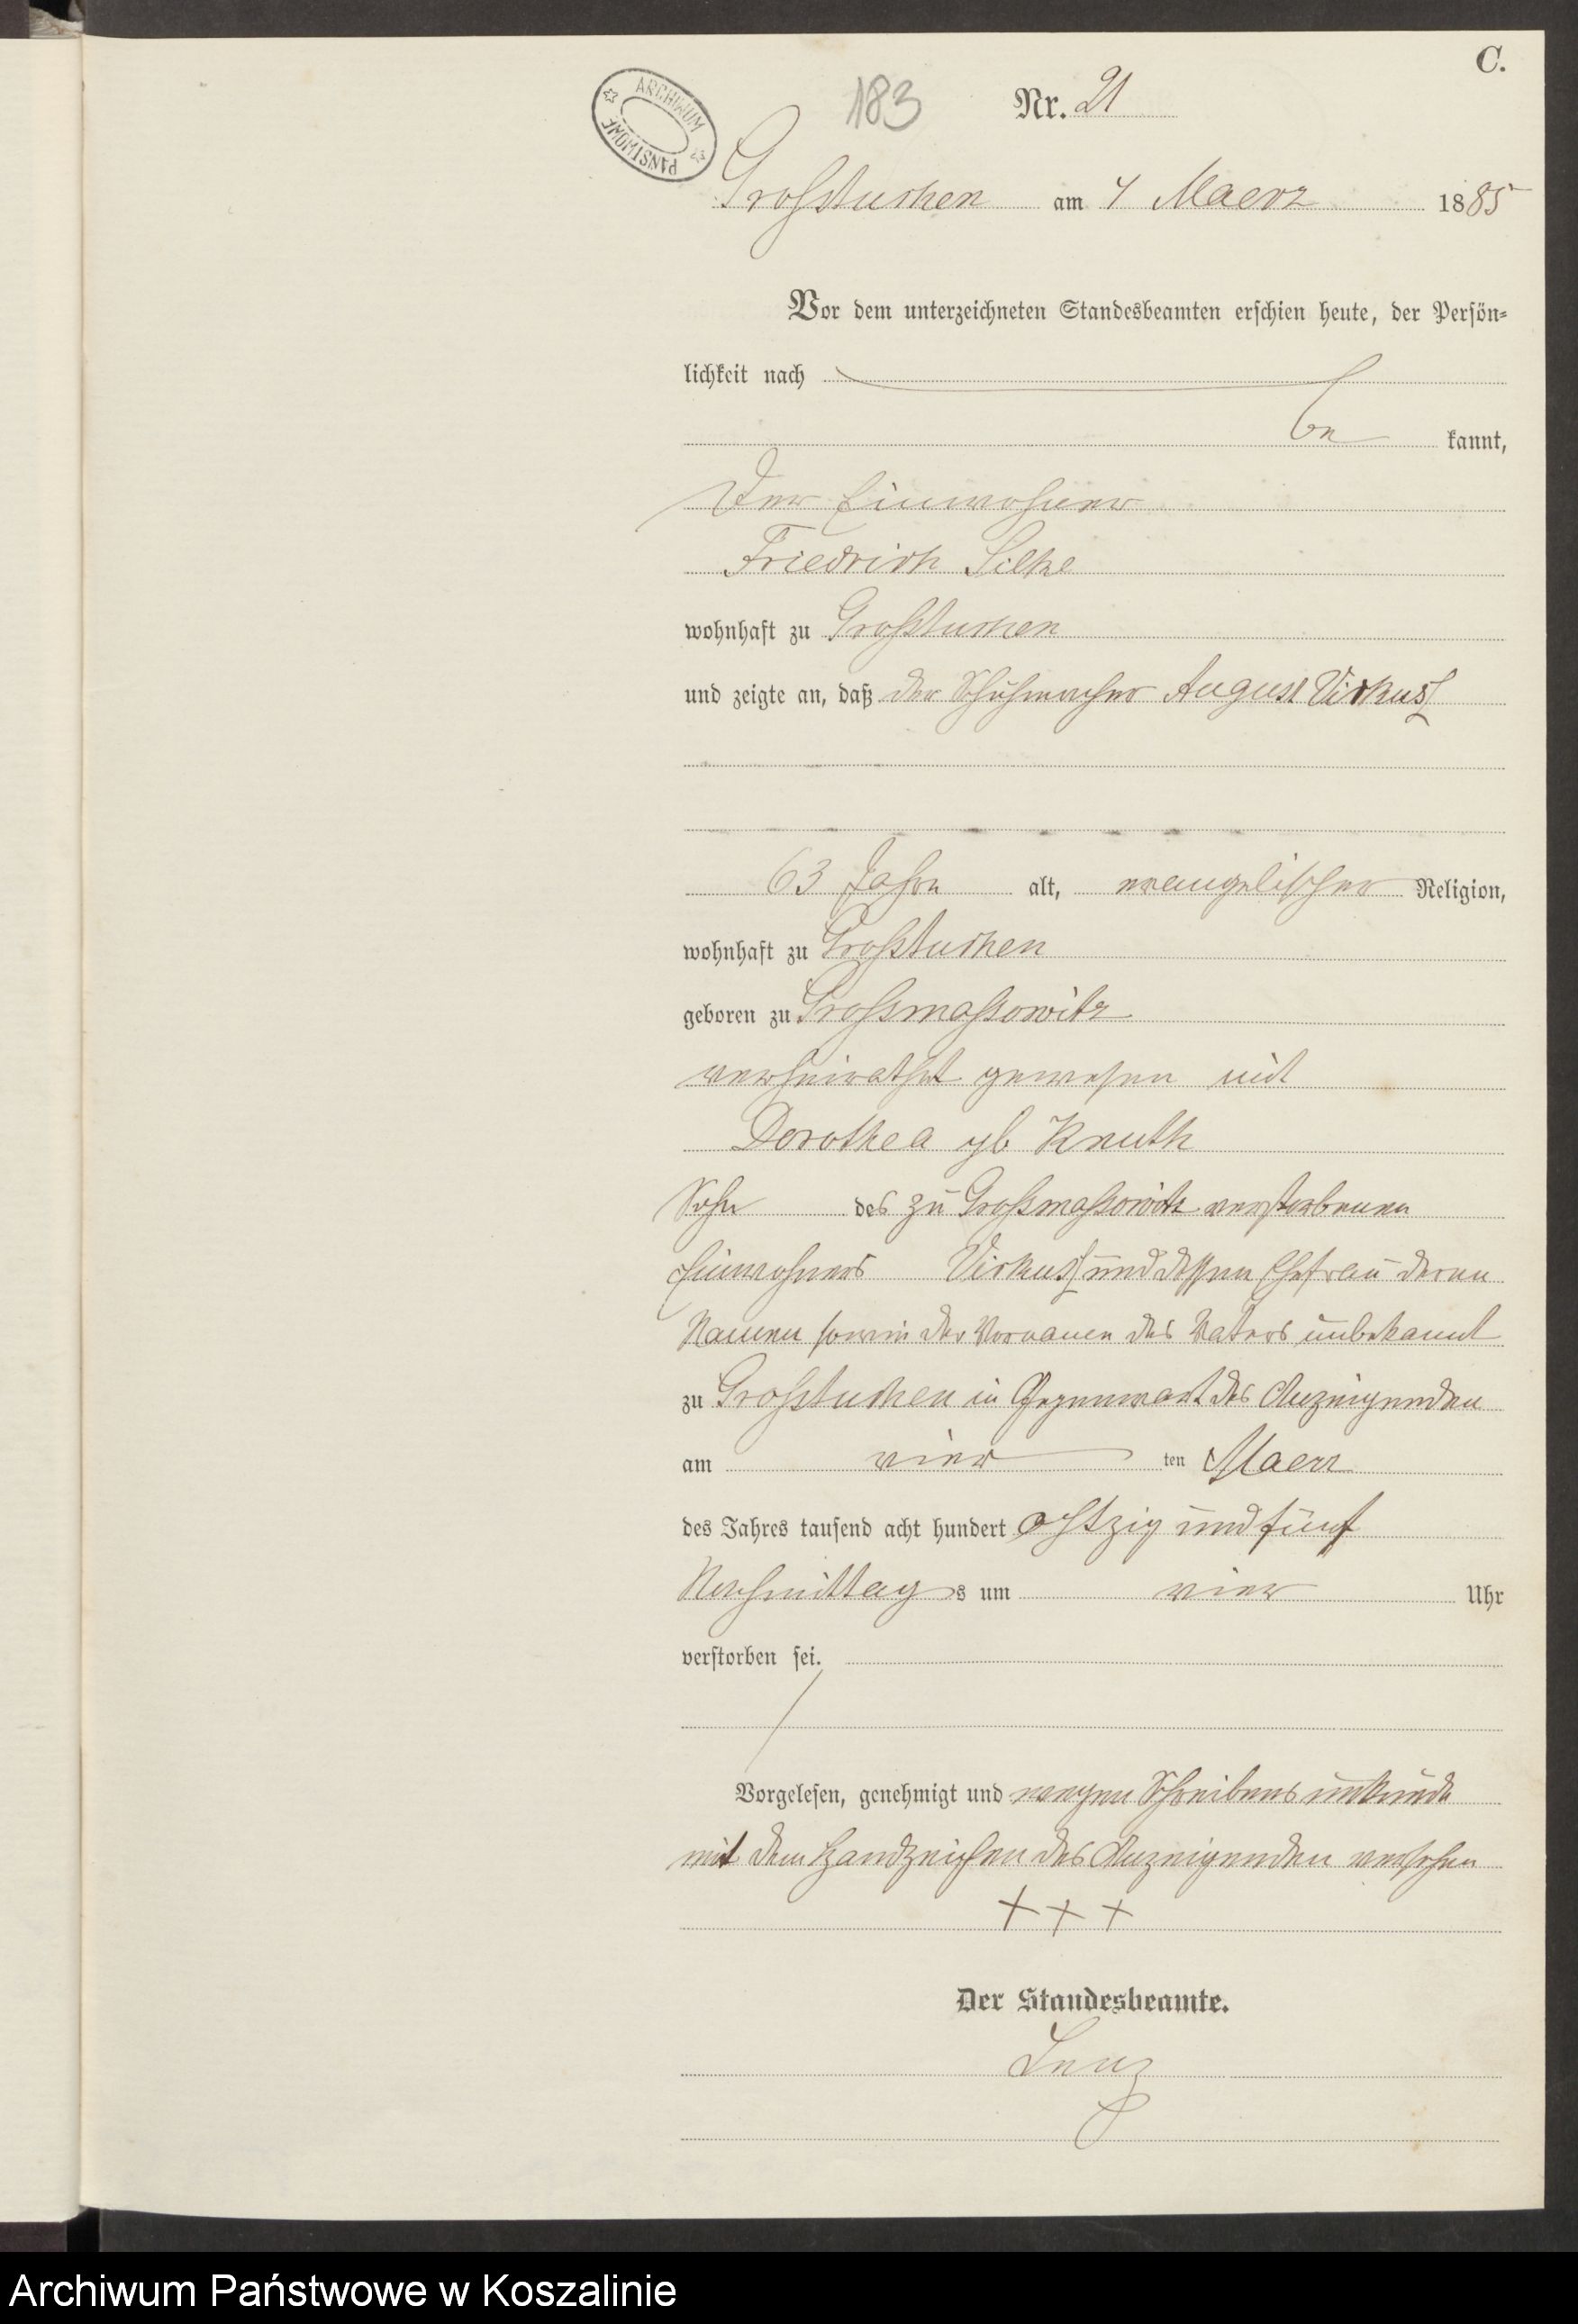 C.
ARCHIWUM PAŃSTWOWE
183 Nr. 21
Großtuchen am 4 Maerz 1885
Vor dem unterzeichneten Standesbeamten erschien heute, der Persön-
lichkeit nach
be kannt,
Der Einwohner
Friedrich Silke
wohnhaft zu Großtuchen
und zeigte an, daß der Schuhmacher August Virkus
63 Jahre alt, evangelischer Religion,
wohnhaft zu Großtuchen
geboren zu Großmassowitz
verheirathet gewesen mit
Dorothea gb Knuth
Sohn des zu Großmassowitz verstorbenen
Einwohners Virkus und dessen Ehefrau deren
Namen sowie der Vornamen des Vaters unbekannt
zu Großtuchen in Gegenwart des Anzeigenden
am vier ten Maerz
des Jahres tausend acht hundert achtzig und fünf
Nachmittag s um vier Uhr
verstorben sei.
Vorgelesen, genehmigt und wegen Schreibens unkunde
mit dem Handzeichen des Anzeigenden versehen
+ + +
Der Standesbeamte.
Lenz
Archiwum Państwowe w Koszalinie